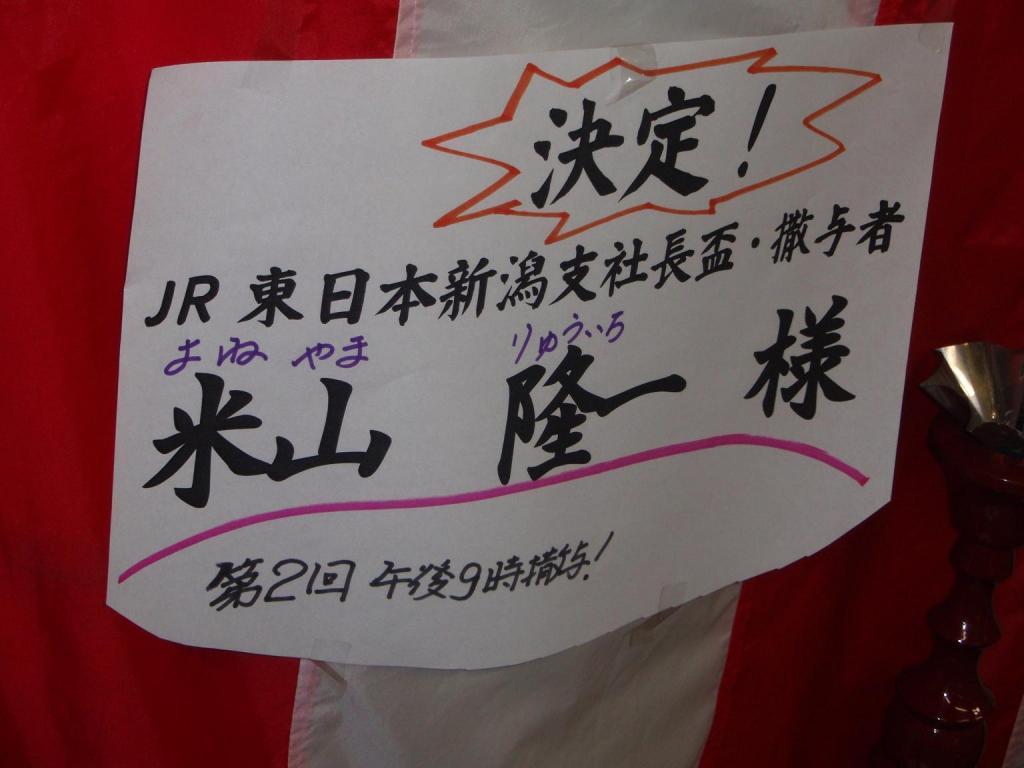 決定!
JR 東日本新潟支社長盃・撒与者
よね やま りゅういち
米山 隆一 様
第2回 午後9時撒与!